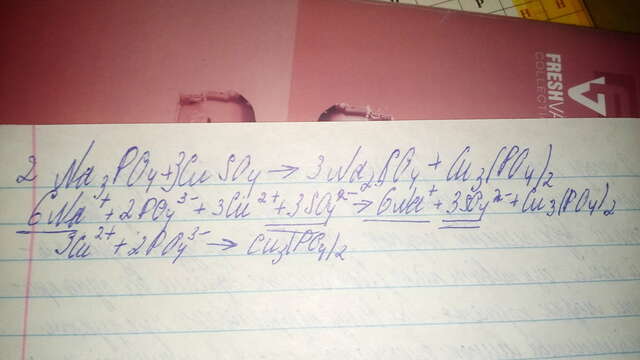 FRESHVA
COLLECTI
2 Na₃PO₄+3CuSO₄→3Na₂SO₄+Cu₃(PO₄)₂
6Na⁺+2PO₄³⁻+3Cu²⁺+3SO₄²⁻→6Na⁺+3SO₄²⁻+Cu₃(PO₄)₂
3Cu²⁺+2PO₄³⁻→Cu₃(PO₄)₂